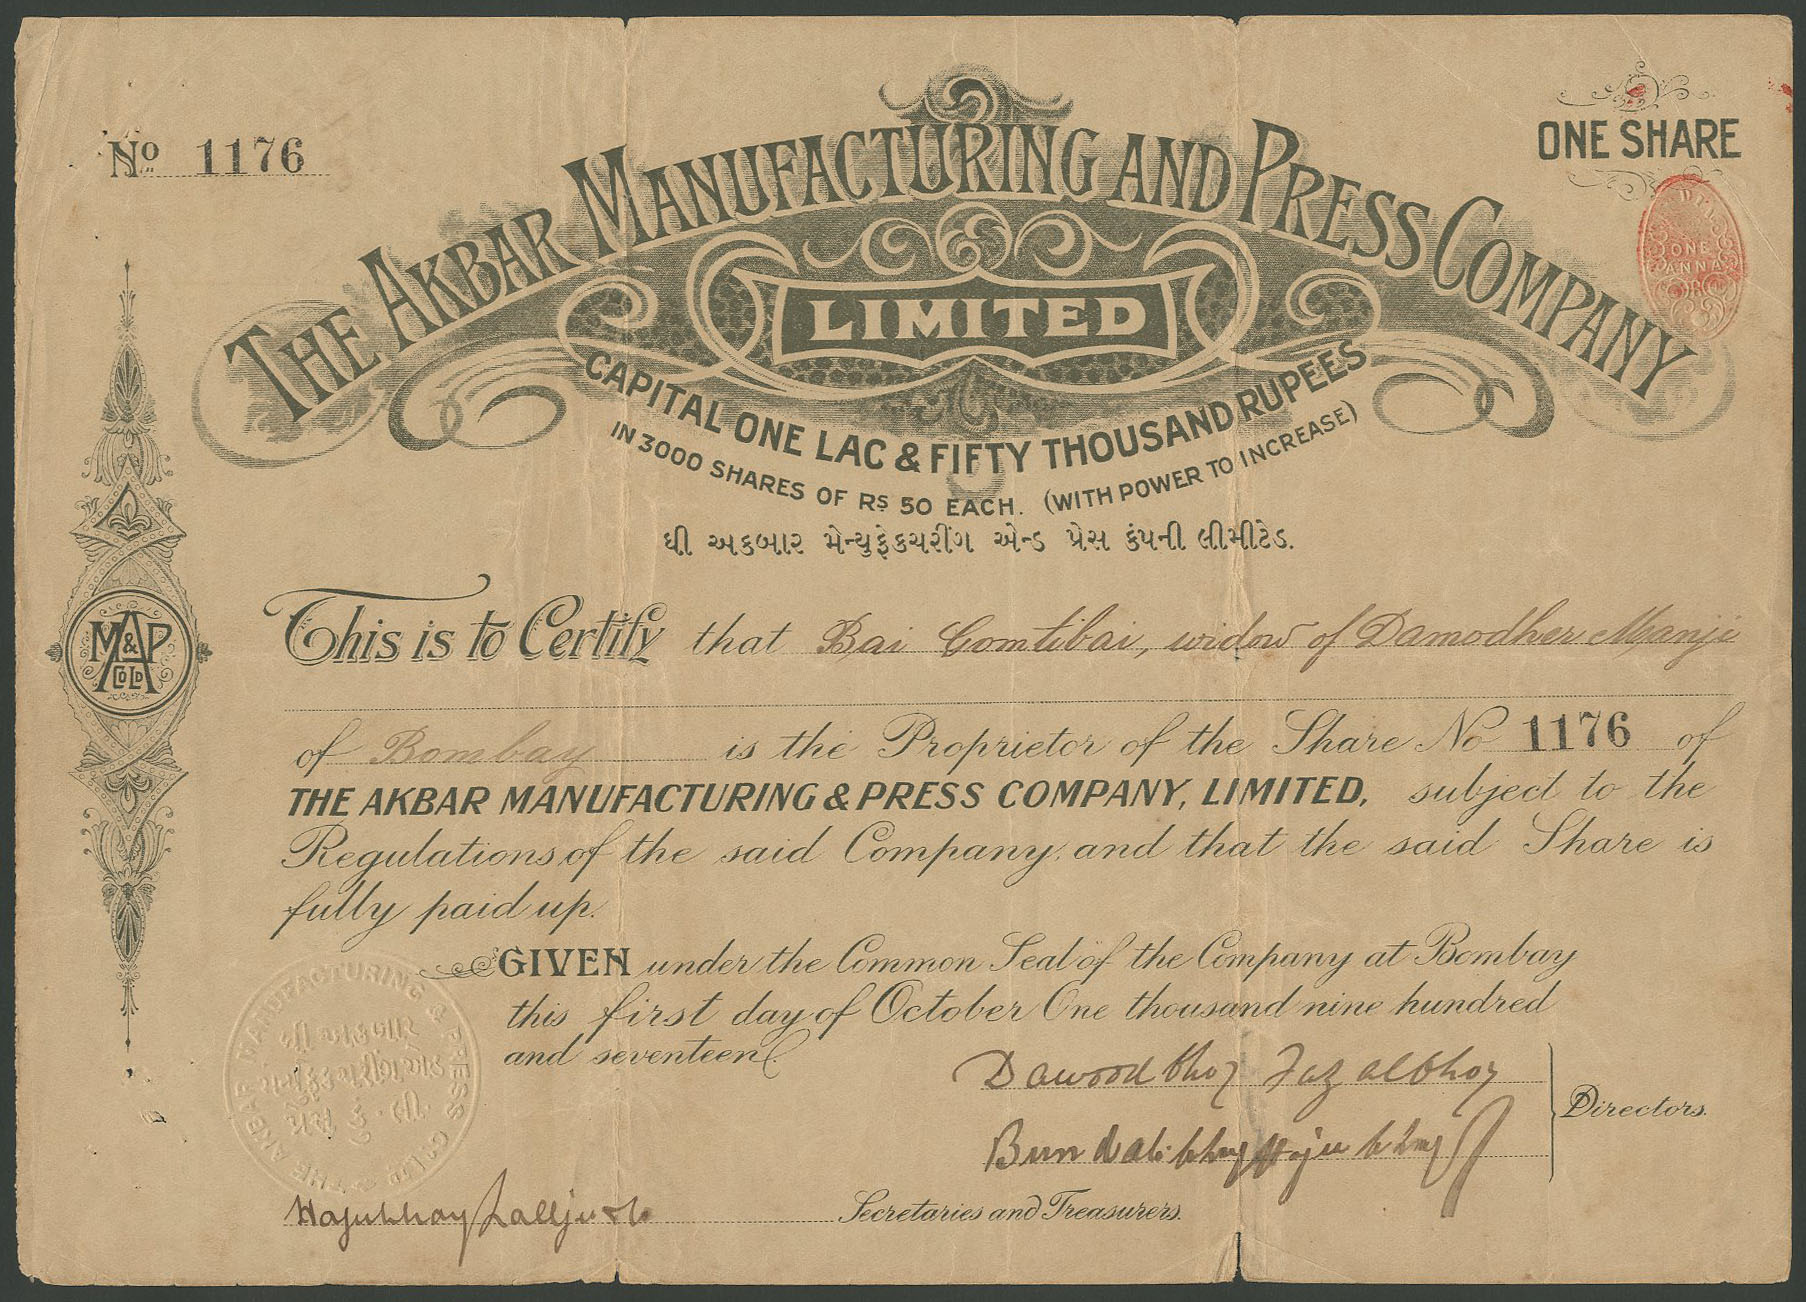 No 1176
ONE SHARE
THE AKBAR MANUFACTURING AND PRESS COMPANY
LIMITED
ONE
ANNA
CAPITAL ONE LAC & FIFTY THOUSAND RUPEES
IN 3000 SHARES OF RS 50 EACH. (WITH POWER TO INCREASE)
ધી અકબાર મેન્યુફેકચરીંગ એન્ડ પ્રેસ કંપની લીમીટેડ.
This is to Certify that Bai Gomtibai, widow of Damodher Manji
of Bombay is the Proprietor of the Share No 1176 of
THE AKBAR MANUFACTURING & PRESS COMPANY, LIMITED, subject to the
Regulations of the said Company, and that the said Share is
fully paid up.
M&AP
CO LD
GIVEN under the Common Seal of the Company at Bombay
this first day of October One thousand nine hundred
and seventeen
Dawoodbhoy Fazalbhoy
Bundalibhoy Hajubhoy
Directors.
THE AKBAR MANUFACTURING & PRESS CO LTD
ધી અકબાર
મેન્યુફેકચરીંગ એંડ
પ્રેસ કું. લી.
Hajubhoy Lallji & Co
Secretaries and Treasurers.